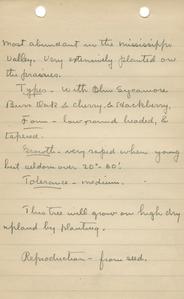 most abundant in the mississippi
Valley. Very extensively planted on
the prairies.
Types - With Elm Sycamore
Burr Oak & Cherry, & Hackberry.
Form - low, round headed, &
tapered.
Growth - very rapid when young
but seldom over 20"- 80'.
Tolerance - medium.
This tree will grow on high dry
upland by planting.
Reproduction - from seed.